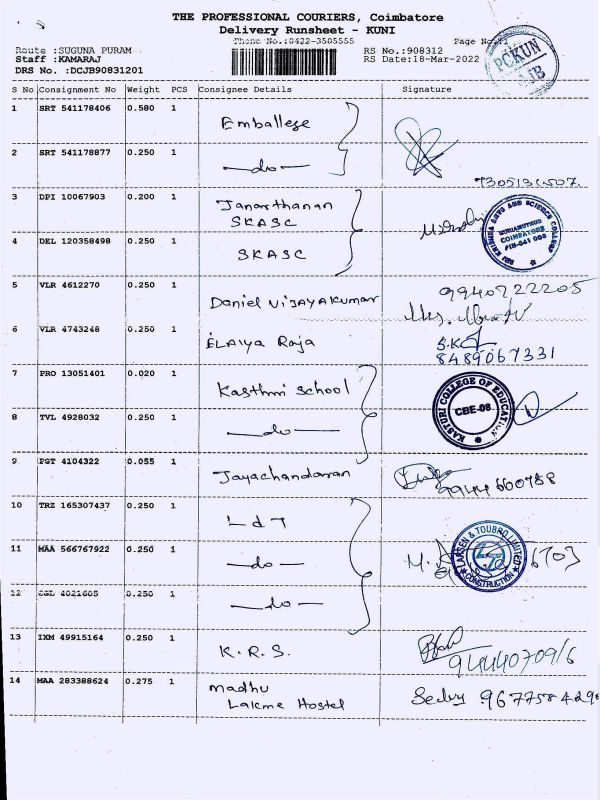 THE PROFESSIONAL COURIERS, Coimbatore
Delivery Runsheet - KUNI
Phone No.:0422-3505555
Page No:1
Route :SUGUNA PURAM
RS No.:908312
Staff :KAMARAJ
RS Date:18-Mar-2022
DRS No. :DCJB90831201
PCKUN
S No Consignment No Weight PCS Consignee Details Signature
1 SRT 541178406 0.580 1 Emballege
2 SRT 541178877 0.250 1 -do-
3 DPI 10067903 0.200 1 Janarthanan
SKASC
SRI KRISHNA ARTS AND SCIENCE COLLEGE
COIMBATORE
PIN-641 008
4 DEL 120358498 0.250 1 SKASC
5 VLR 4612270 0.250 1 Daniel VIJAYAKUMAR 9940722205
6 VLR 4743248 0.250 1 ELAIYA Raja
8489067331
7 PRO 13051401 0.020 1 Kasthri School
KASTURI COLLEGE OF EDUCATION
CBE-08
8 TVL 4928032 0.250 1 -do-
9 PGT 4104322 0.055 1 Jayachandaran 9944660788
10 TRZ 165307437 0.250 1 L d T
11 MAA 566767922 0.250 1 -do-
LARSEN & TOUBRO LIMITED
CONSTRUCTION
12 CGL 4021605 0.250 1 -do-
13 IXM 49915164 0.250 1 K. R. S.
9444070916
14 MAA 283388624 0.275 1 madhu
Lakme Hostel